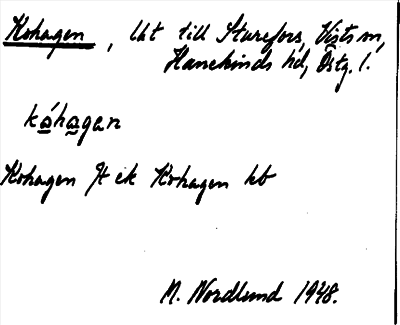 Kohagen, Ut till Sturefors, Vists sn,
Hanekinds hd, Östg. l.
kóhagan
Kohagen Jt ek Kohagen kb
N. Nordlund 1948.